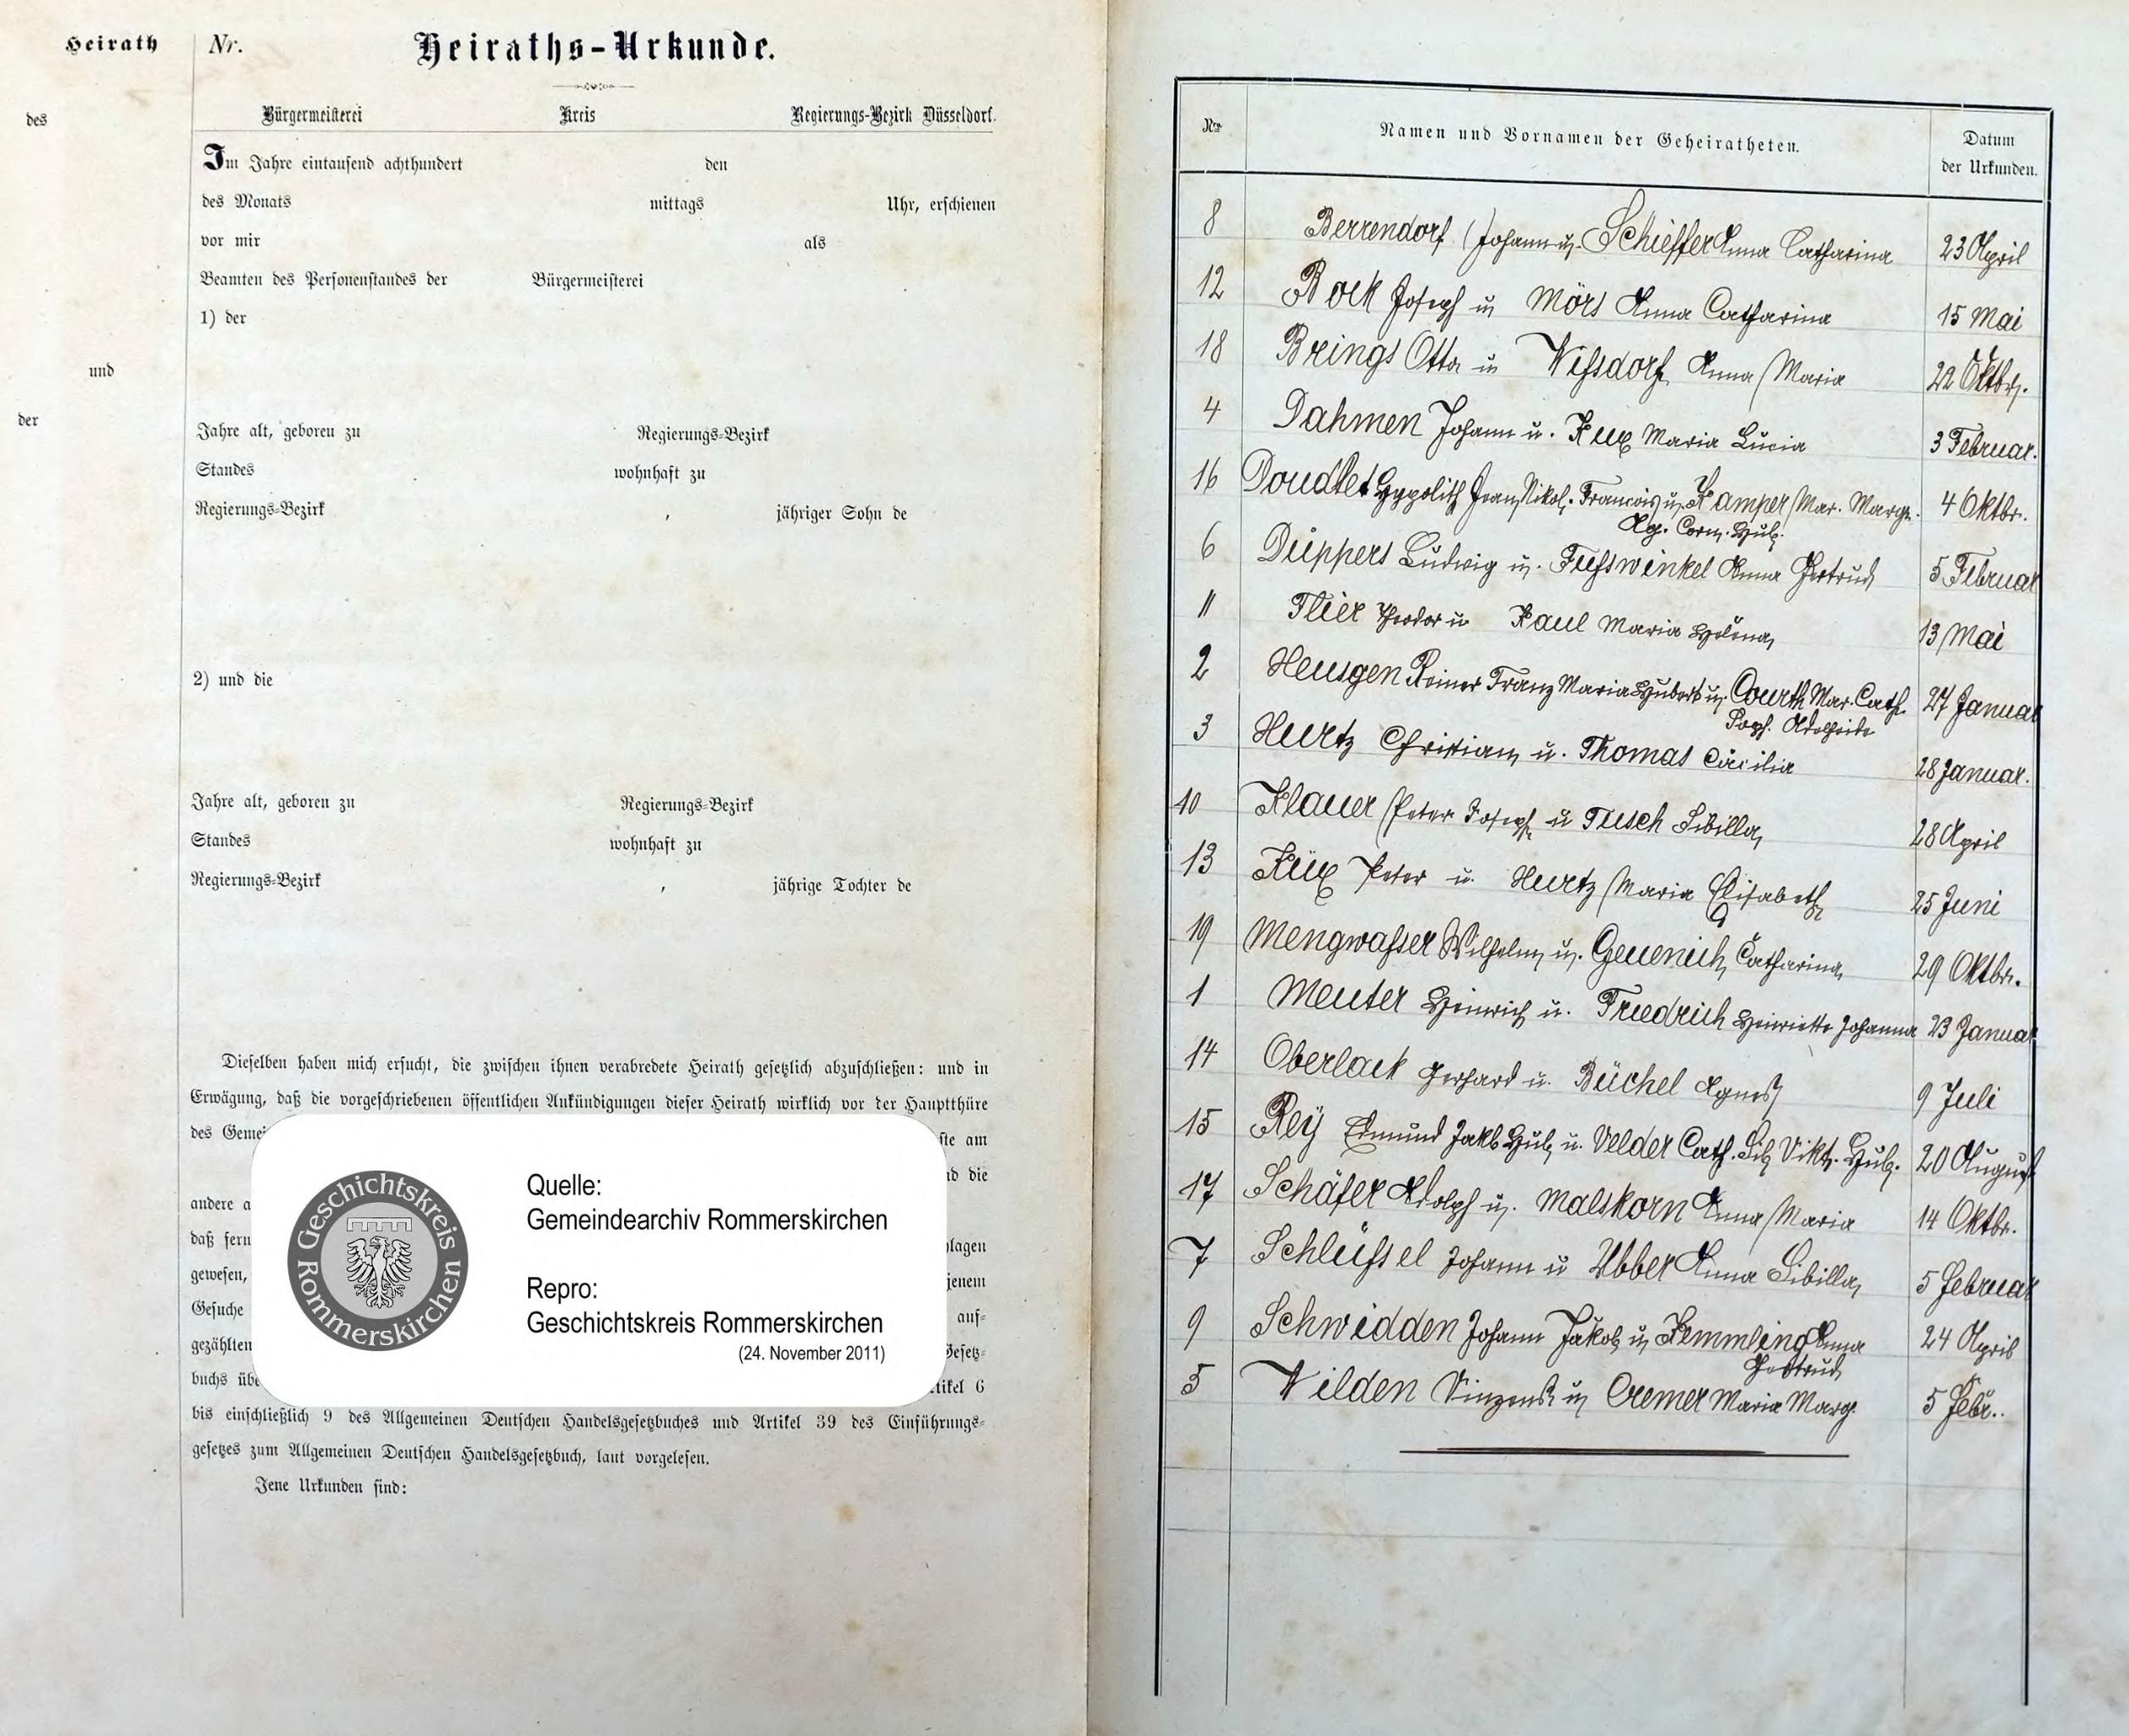 Heirath
des
und
der
Nr. Heiraths-Urkunde.
Bürgermeisterei Kreis Regierungs-Bezirk Düsseldorf.
Im Jahre eintausend achthundert den
des Monats mittags Uhr, erschienen
vor mir als
Beamten des Personenstandes der Bürgermeisterei
1) der
Jahre alt, geboren zu Regierungs-Bezirk
Standes wohnhaft zu
Regierungs-Bezirk , jähriger Sohn de
2) und die
Jahre alt, geboren zu Regierungs-Bezirk
Standes wohnhaft zu
Regierungs-Bezirk , jährige Tochter de
Dieselben haben mich ersucht, die zwischen ihnen verabredete Heirath gesetzlich abzuschließen: und in
Erwägung, daß die vorgeschriebenen öffentlichen Ankündigungen dieser Heirath wirklich vor der Hauptthüre
des Gemei ste am
die
andere a
daß fern lagen
gewesen, jenem
Gesuche auf-
gezählten Gesetz-
buchs übe tikel 6
bis einschließlich 9 des Allgemeinen Deutschen Handelsgesetzbuches und Artikel 39 des Einführungs-
gesetzes zum Allgemeinen Deutschen Handelsgesetzbuch, laut vorgelesen.
Jene Urkunden sind:
Geschichtskreis Rommerskirchen
Quelle:
Gemeindearchiv Rommerskirchen
Repro:
Geschichtskreis Rommerskirchen
(24. November 2011)
Nr. Namen und Vornamen der Geheiratheten. Datum
der Urkunden.
8 Berrendorf Johann u. Schieffer Anna Catharina 23 April
12 Bock Joseph u Mörs Anna Catharina 15 Mai
18 Brings Otto u Wißdorf Anna Maria 22 Oktbr.
4 Dahmen Johann u. Kux Maria Lucia 3 Februar.
16 Doudlet Hypolith Jean Nikol. Francois u. Kamper Mar. Marg. 4 Oktbr.
Ag. Corn. Hub.
6 Düppers Ludwig u. Fußwinkel Anna Gertrud 5 Februar
11 Flier Theodor u Kaul Maria Helena 13 Mai
2 Heusgen Reiner Franz Maria Hubert u. Courth Mar. Cath. 27 Januar
Soph. Adelheide
3 Hurtz Christian u. Thomas Cäcilia 28 Januar.
10 Klauer Peter Joseph u Tusch Sibilla 28 April
13 Küx Peter u. Hurtz Maria Elisabeth 25 Juni
19 Mengwaßer Wilhelm u. Geuenich Catharina 29 Oktbr.
1 Meuter Heinrich u. Friedrich Henriette Johanna 23 Januar
14 Oberlack Gerhard u. Büchel Agnes 9 Juli
15 Rey Edmund Jakb Hub. u. Velder Cath. Sib. Vikt. Hub. 20 August
17 Schäfer Adolph u. Malskorn Anna Maria 14 Oktbr.
7 Schlüßel Johann u Ubber Anna Sibilla 5 Februar
9 Schwidden Johann Jakob u Kemmling Anna 24 April
Gertrud
5 Wilden Vinzens u Cremer Maria Marg. 5 Febr..